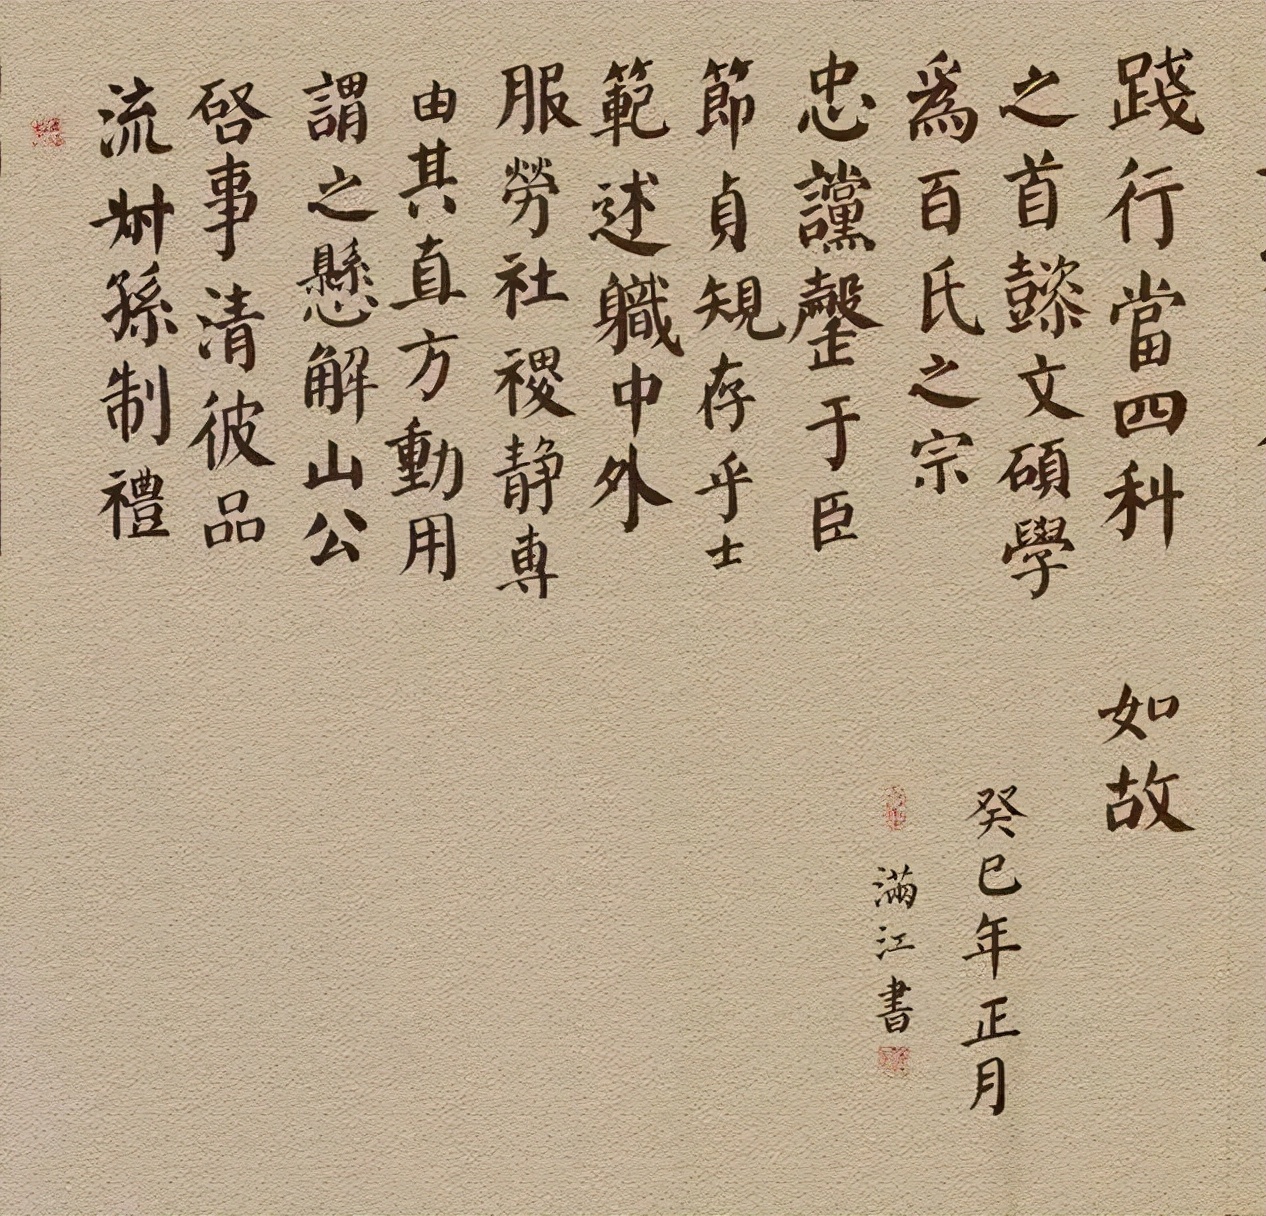 踐行當四科
之首懿文碩學
爲百氏之宗
忠讜罄于臣
節貞規存乎士
範述職中外
服勞社稷静專
由其直方動用
謂之懸解山公
啓事清彼品
流叔孫制禮
如故
癸巳年正月
滿江書